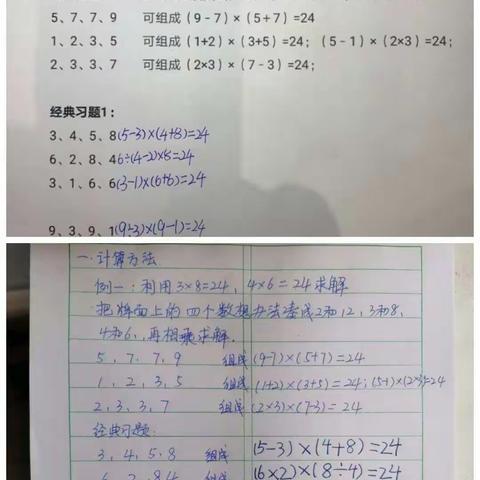 5、7、7、9 可组成(9-7)×(5+7)=24
1、2、3、5 可组成(1+2)×(3+5)=24;(5-1)×(2×3)=24;
2、3、3、7 可组成(2×3)×(7-3)=24;
经典习题1:
3、4、5、8(5-3)×(4+8)=24
6、2、8、4 6÷(4-2)×8=24
3、1、6、6(3-1)×(6+6)=24
9、3、9、1(9÷3)×(9-1)=24
一.计算方法
例一:利用3×8=24,4×6=24求解
把牌面上的四个数想办法凑成2和12,3和8,
4和6,再相乘求解.
5,7,7,9 组成(9-7)×(5+7)=24
1,2,3,5 组成(1+2)×(3+5)=24;(5-1)×(2×3)=24
2,3,3,7 组成(2×3)×(7-3)=24
经典习题:
3,4,5.8 组成(5-3)×(4+8)=24
6,2,8 4 组成(6×2)×(8÷4)=24